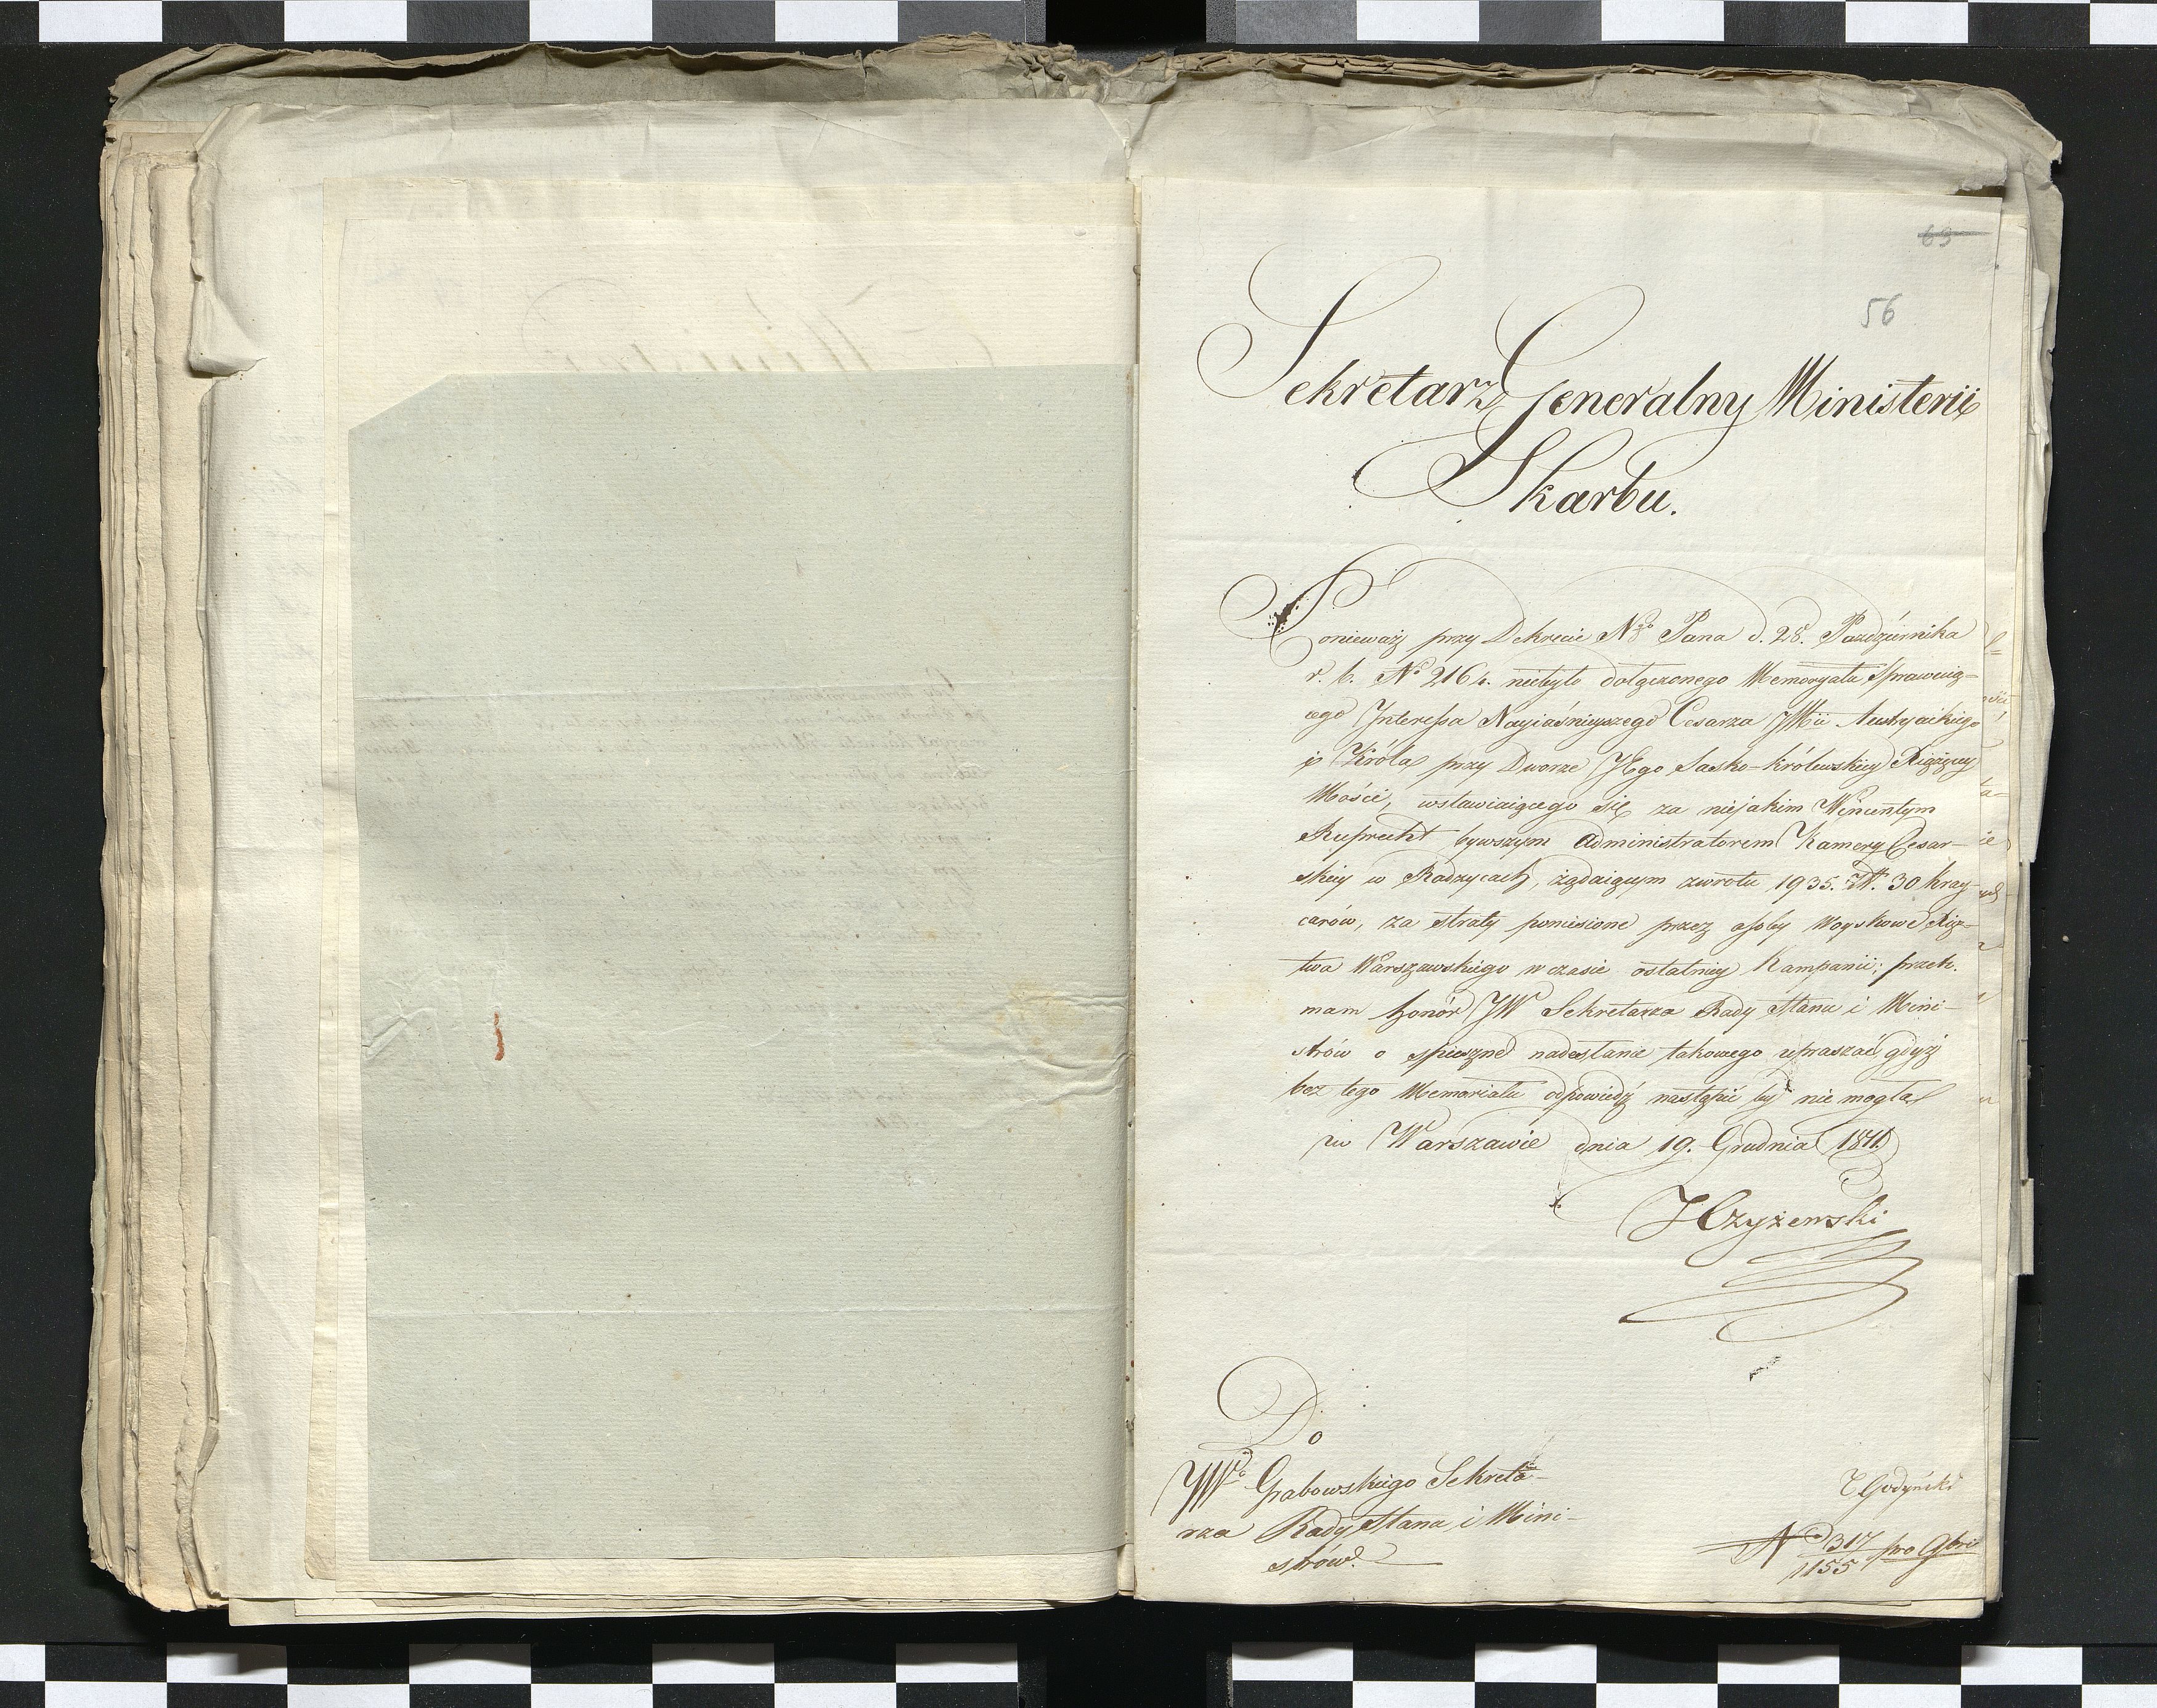 63
56
Sekretarz Generalny Ministerii
Skarbu.
Ponieważ przy Dekrecie Ngo Pana d. 28. Pazdziernika
r. b. No 2164. niebyło dołączonego Memoryału sprawuią-
cego Interessa Nayiaśnieyszego Cesarza JMci Austryackiego
i Króla przy Dworze JEgo Sasko-Królewskiey Xiążęcey
Mości, wstawiaiącego się za niejakim Wincentym
Ruprecht bywszym Administratorem Kamery Cesar-
skiey w Radzycach, żądaiącym zwrotu 1935. Zł. 30 kray-
carów, za straty poniesione przez osoby Woyskowe Xię-
twa Warszawskiego w czasie ostatniey Kampanii; przeto
mam honór JW Sekretarza Rady Stanu i Mini-
strów o spieszne nadesłanie takowego upraszać, gdyż
bez tego Memoriału odpowiedź nastąpić by nie mogła
w Warszawie dnia 19. Grudnia 1811.
JCzyżewski
Do
JWgo Grabowskiego Sekreta-
rza Rady Stanu i Mini-
strów.
Godynicki
No 317 pro
1155